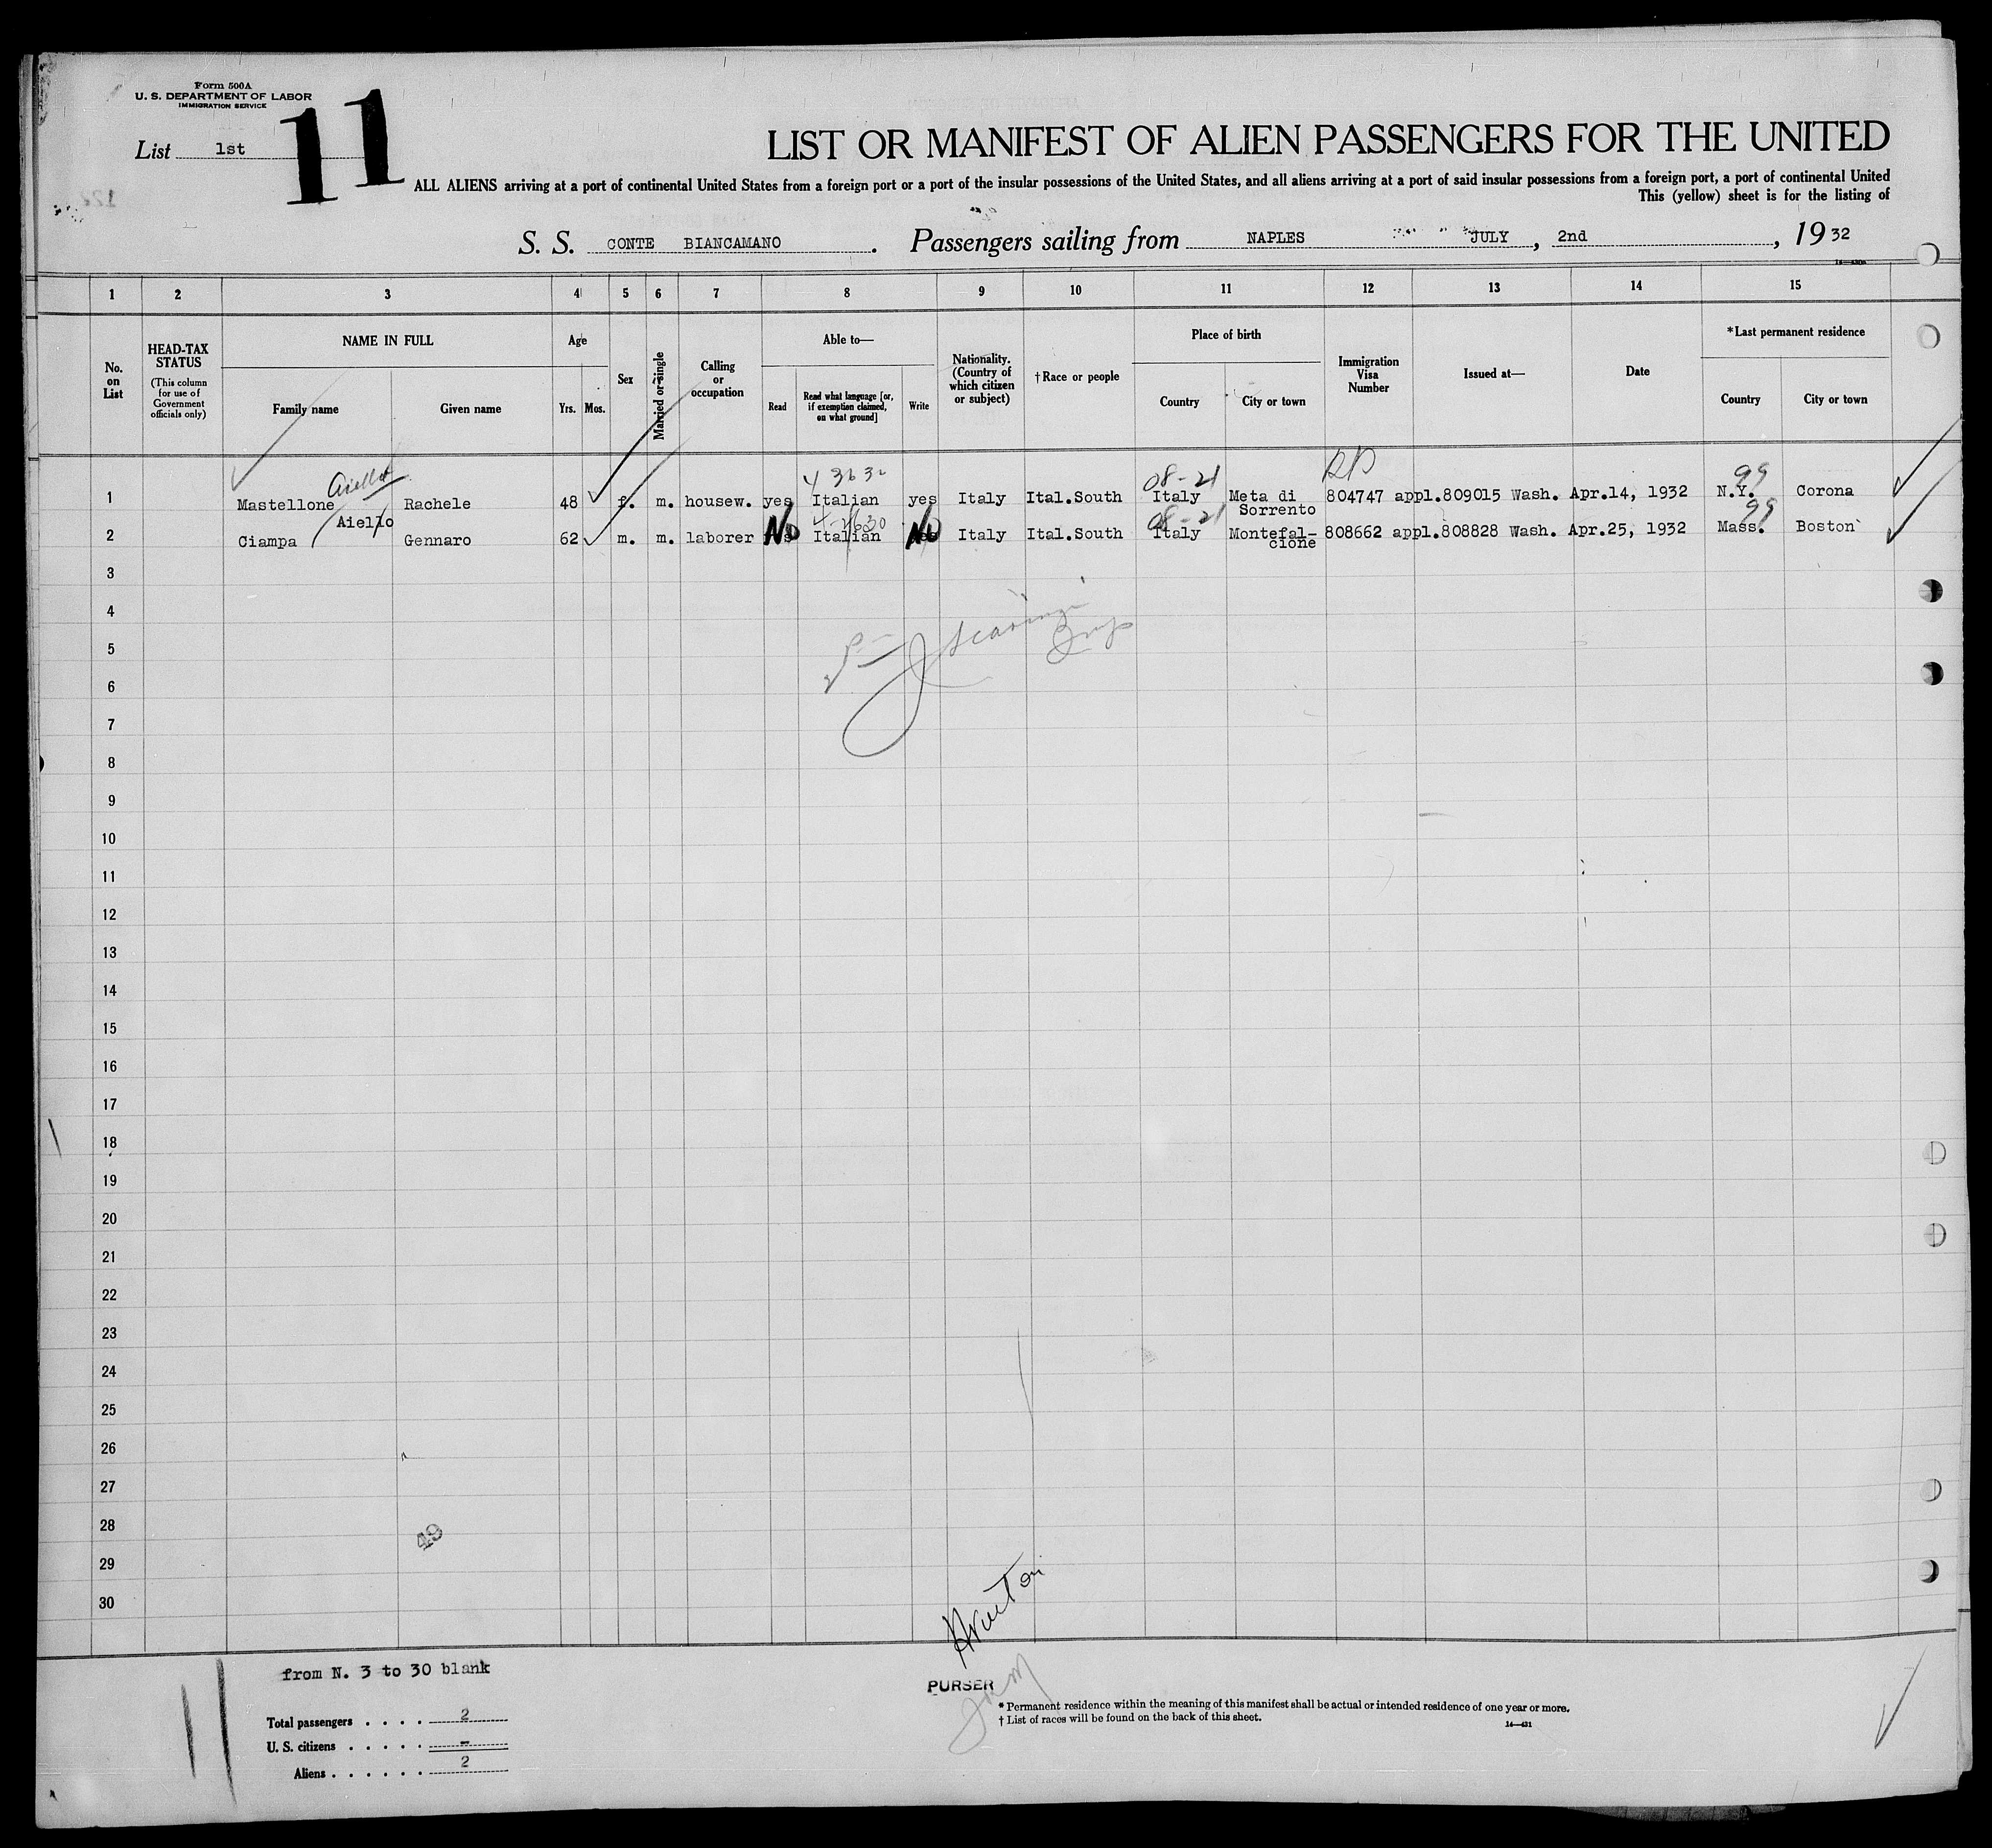 Form 500A
U. S. DEPARTMENT OF LABOR
IMMIGRATION SERVICE
List 1st
11
LIST OR MANIFEST OF ALIEN PASSENGERS FOR THE UNITED
ALL ALIENS arriving at a port of continental United States from a foreign port or a port of the insular possessions of the United States, and all aliens arriving at a port of said insular possessions from a foreign port, a port of continental United
This (yellow) sheet is for the listing of
S. S. CONTE BIANCAMANO. Passengers sailing from NAPLES JULY, 2nd, 1932
1 2 3 4 5 6 7 8 9 10 11 12 13 14 15
No. on List
HEAD-TAX STATUS
(This column for use of Government officials only)
NAME IN FULL
Family name
Given name
Age
Yrs. Mos.
Sex
Married or single
Calling or occupation
Able to—
Read
Read what language [or, if exemption claimed, on what ground]
Write
Nationality. (Country of which citizen or subject)
†Race or people
Place of birth
Country
City or town
Immigration Visa Number
Issued at—
Date
*Last permanent residence
Country
City or town
Aiello
4 3632
08-21
RP
99
1 Mastellone Rachele 48 f. m. housew. yes Italian yes Italy Ital.South Italy Meta di Sorrento 804747 appl.809015 Wash. Apr.14, 1932 N.Y. Corona
Aiello
No
No
08-21
99
2 Ciampa Gennaro 62 m. m. laborer Italian Italy Ital.South Italy Montefal-cione 808662 appl.808828 Wash. Apr.25, 1932 Mass. Boston
3
4
5
6
7
8
9
10
11
12
13
14
15
16
17
18
19
20
21
22
23
24
25
26
27
28
29
30
49
from N. 3 to 30 blank
PURSER
Total passengers . . . . 2
U. S. citizens . . . . . -
Aliens . . . . . . 2
* Permanent residence within the meaning of this manifest shall be actual or intended residence of one year or more.
† List of races will be found on the back of this sheet.
14—431